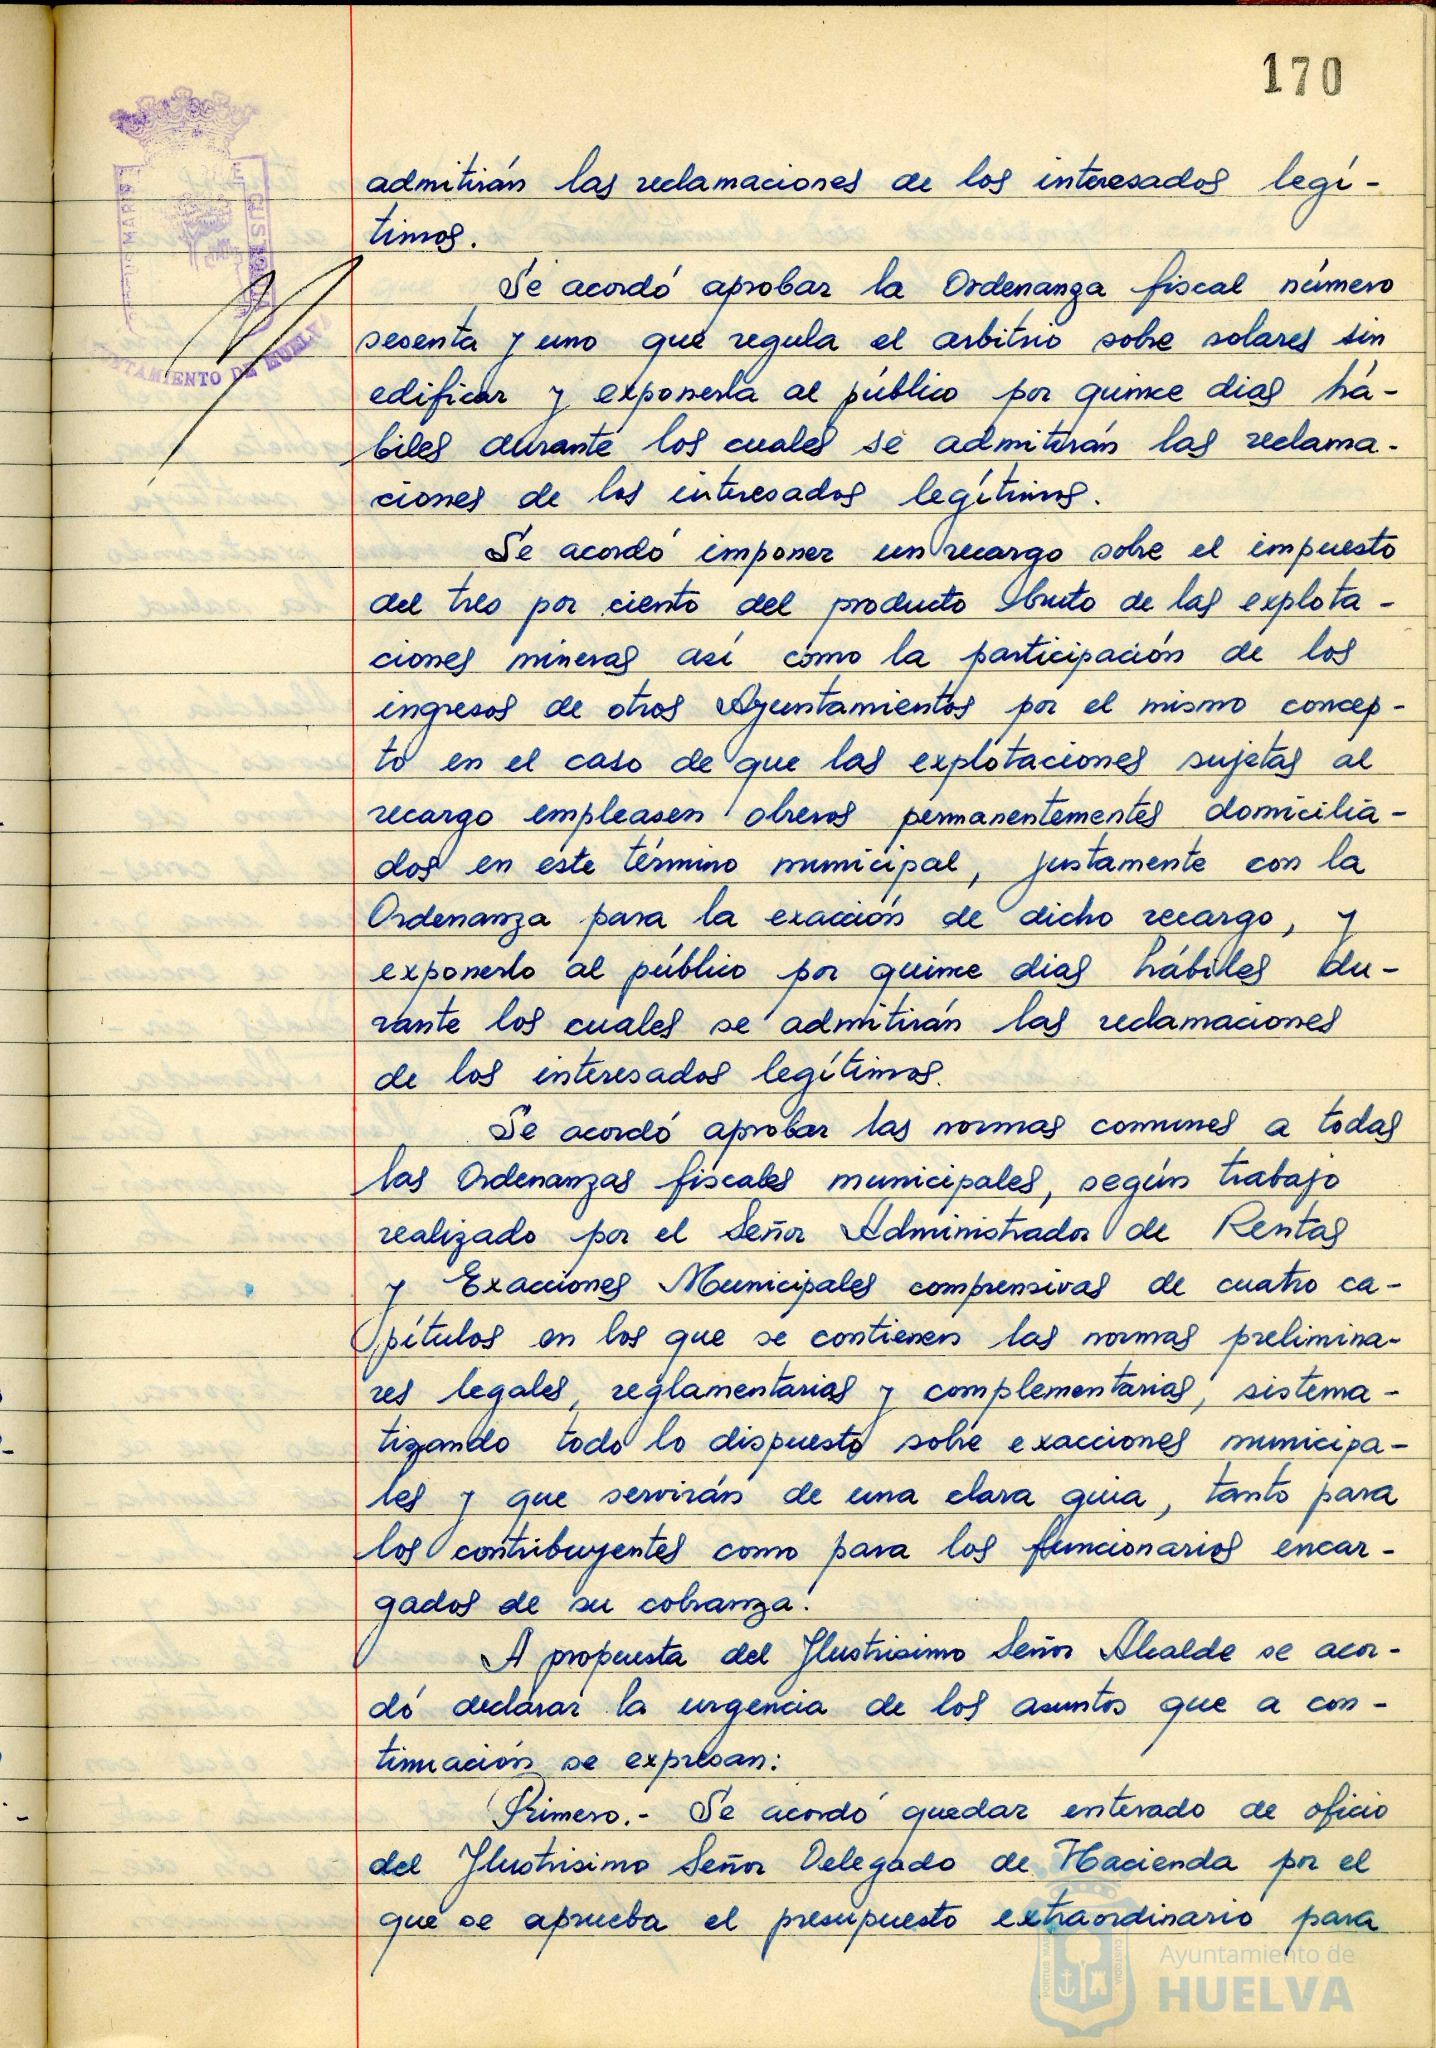 170
admitirán las reclamaciones de los interesados legí-
timos.
Se acordó aprobar la Ordenanza fiscal número
sesenta y uno que regula el arbitrio sobre solares sin
edificar y exponerla al público por quince dias há-
biles durante los cuales se admitirán las reclama-
ciones de los interesados legítimos.
Se acordó imponer un recargo sobre el impuesto
del tres por ciento del producto bruto de las explota-
ciones mineras así como la participación de los
ingresos de otros Ayuntamientos por el mismo concep-
to en el caso de que las explotaciones sujetas al
recargo empleasen obreros permanentementes domicilia-
dos en este término municipal, justamente con la
Ordenanza para la exacción de dicho recargo, y
exponerlo al público por quince dias hábiles du-
rante los cuales se admitirán las reclamaciones
de los interesados legítimos.
Se acordó aprobar las normas comunes a todas
las Ordenanzas fiscales municipales, según trabajo
realizado por el Señor Administrador de Rentas
y Exacciones Municipales comprensivas de cuatro ca-
pítulos en los que se contienen las normas prelimina-
res legales, reglamentarias y complementarias, sistema-
tizando todo lo dispuesto sobre exacciones municipa-
les y que servirán de una clara guia, tanto para
los contribuyentes como para los funcionarios encar-
gados de su cobranza.
A propuesta del Ilustrisimo Señor Alcalde se acor-
dó declarar la urgencia de los asuntos que a con-
tinuación se expresan:
Primero.- Se acordó quedar enterado de oficio
del Ilustrisimo Señor Delegado de Hacienda por el
que se aprueba el presupuesto extraordinario para
MARIS
CUSTODIA
AYUNTAMIENTO DE HUELVA
PORTUS MARIS
CUSTODIA
Ayuntamiento de
HUELVA